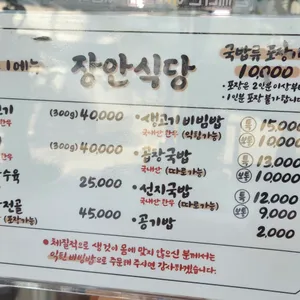 메뉴
장안식당
국밥류 포장
10,000
•포장은 2인분이상부
•1인분 포장 불가합
(300g) 40,000
국내산 한우
•생고기비빔밥
국내산 한우 (익힘가능)
특 15,000
보통 10,000
(300g) 40,000
국내산 한우
•곱창국밥
국내산 한우 (따로가능)
특 13,000
보통 10,000
수육
25,000
•선지국밥
국내산 한우 (따로가능)
특 12,000
보통 9,000
전골
(포장가능)
45,000
•공기밥
2,000
•체질적으로 생것이 몸에 맞지 않으신 분께서는
익힌비빔밥으로 주문해 주시면 감사하겠습니다.